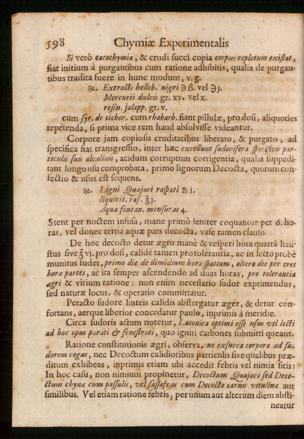 598 Chymiæ Experimentalis
Si verò cacochymia, & crudi succi copia corpus repletum existat,
fiat initium à purgantibus cum ratione adhibitis, qualia de purgan-
tibus tradita fuere in hunc modum, v. g.
℞. Extracti helleb. nigri ℈ ß. vel ℈ j.
Mercurii dulcis gr. xv. vel x.
resin. jalapp. gr. v.
cum syr. de cichor. cum rhabarb. fiant pillulæ, pro dosi, aliquoties
repetenda, si prima vice rem haud absolvisse videantur.
Corpore jam copiosis cruditatibus liberato, & purgato, ad
specifica fiat transgressio, inter hæc excellunt sudorifera specifica par-
ticulis suis alcalinis, acidum corruptum corrigentia, qualia suppedi-
tant longo usu comprobata, primo lignorum Decocta, quorum con-
fectio & usus est sequens.
℞. Ligni Quajaci raspati ℔ j.
liquirit. ras. ℥ j.
Aquæ fontan. mensuras 4.
Stent per noctem infusa, mane primò leniter coquantur per 6. ho-
ras, vel donec tertia aquæ pars decocta, vase tamen clauso.
De hoc decocto detur ægro manè & vesperi hora quarta hau-
stus sive ℥ vj. pro dosi, calidè tamen protolerantia, ac in lecto probè
munitus sudet, primo die ad dimidium horæ spatium, altera die per tres
horæ partes, ac ita semper ascendendo ad duas horas, pro tolerantia
ægri & virium ratione: non enim necessario sudor exprimendus,
sed naturæ locus, & operatio committatur.
Peracto sudore linteis calidis abstergatur æger, & detur con-
fortans, aerque liberior concedatur paulo, inprimis à meridie.
Circa sudoris actum notetur, Laconica optimi esse usus vel lecti
ad hoc ipsum parati & fenestrati, quo igniti carbones submitti queant.
Ratione constitutionis ægri, observa, ne exsucca corpora ad su-
dorem cogas, nec Decoctum calidioribus particulis sive qualibus præ-
ditum exhibeas, inprimis etiam ubi accedit febris vel nimia sitis:
In hoc casu, non nimium propinetur, Decoctum Quajaci sed Deco-
ctum chynæ cum passulis, vel sassafras cum Decocto carnis vitulinæ aut
similibus. Vel etiam ratione febris, per unum aut alterum diem absti-
neatur